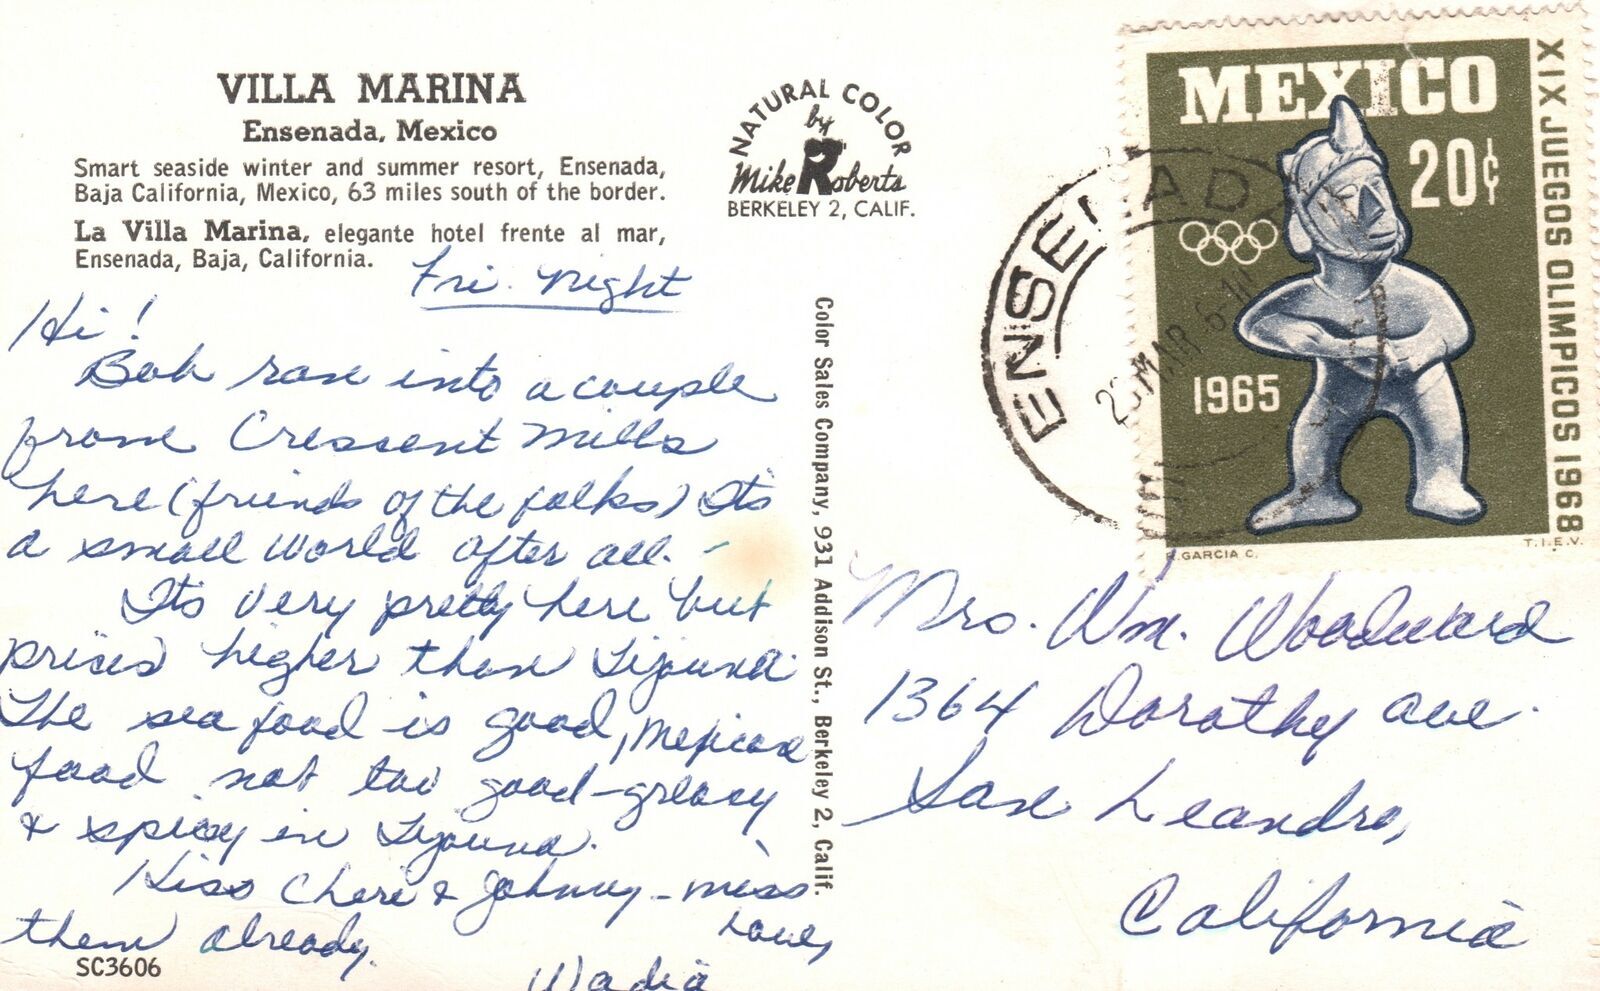 VILLA MARINA
Ensenada, Mexico
Smart seaside winter and summer resort, Ensenada,
Baja California, Mexico, 63 miles south of the border.
La Villa Marina, elegante hotel frente al mar,
Ensenada, Baja, California.
Fri. night
Hi!
Bob ran into a couple
from Crescent Mills
here (friends of the folks) Its
a small world after all. -
Its very pretty here but
prices higher than Tijuana.
The sea food is good, Mexican
food not too good-greasy
& spicy in Tijuana.
Kiss Cheri & Johnny - miss
them already.
Love,
Wadia
SC3606
NATURAL COLOR
by
Mike Roberts
BERKELEY 2, CALIF.
Color Sales Company, 931 Addison St., Berkeley 2, Calif.
ENSENADA
MAR 6
MEXICO
20¢
1965
XIX JUEGOS OLIMPICOS 1968
GARCIA C.
T.I.E.V.
Mrs. Wm. Woodward
1364 Dorothy Ave.
San Leandro,
California